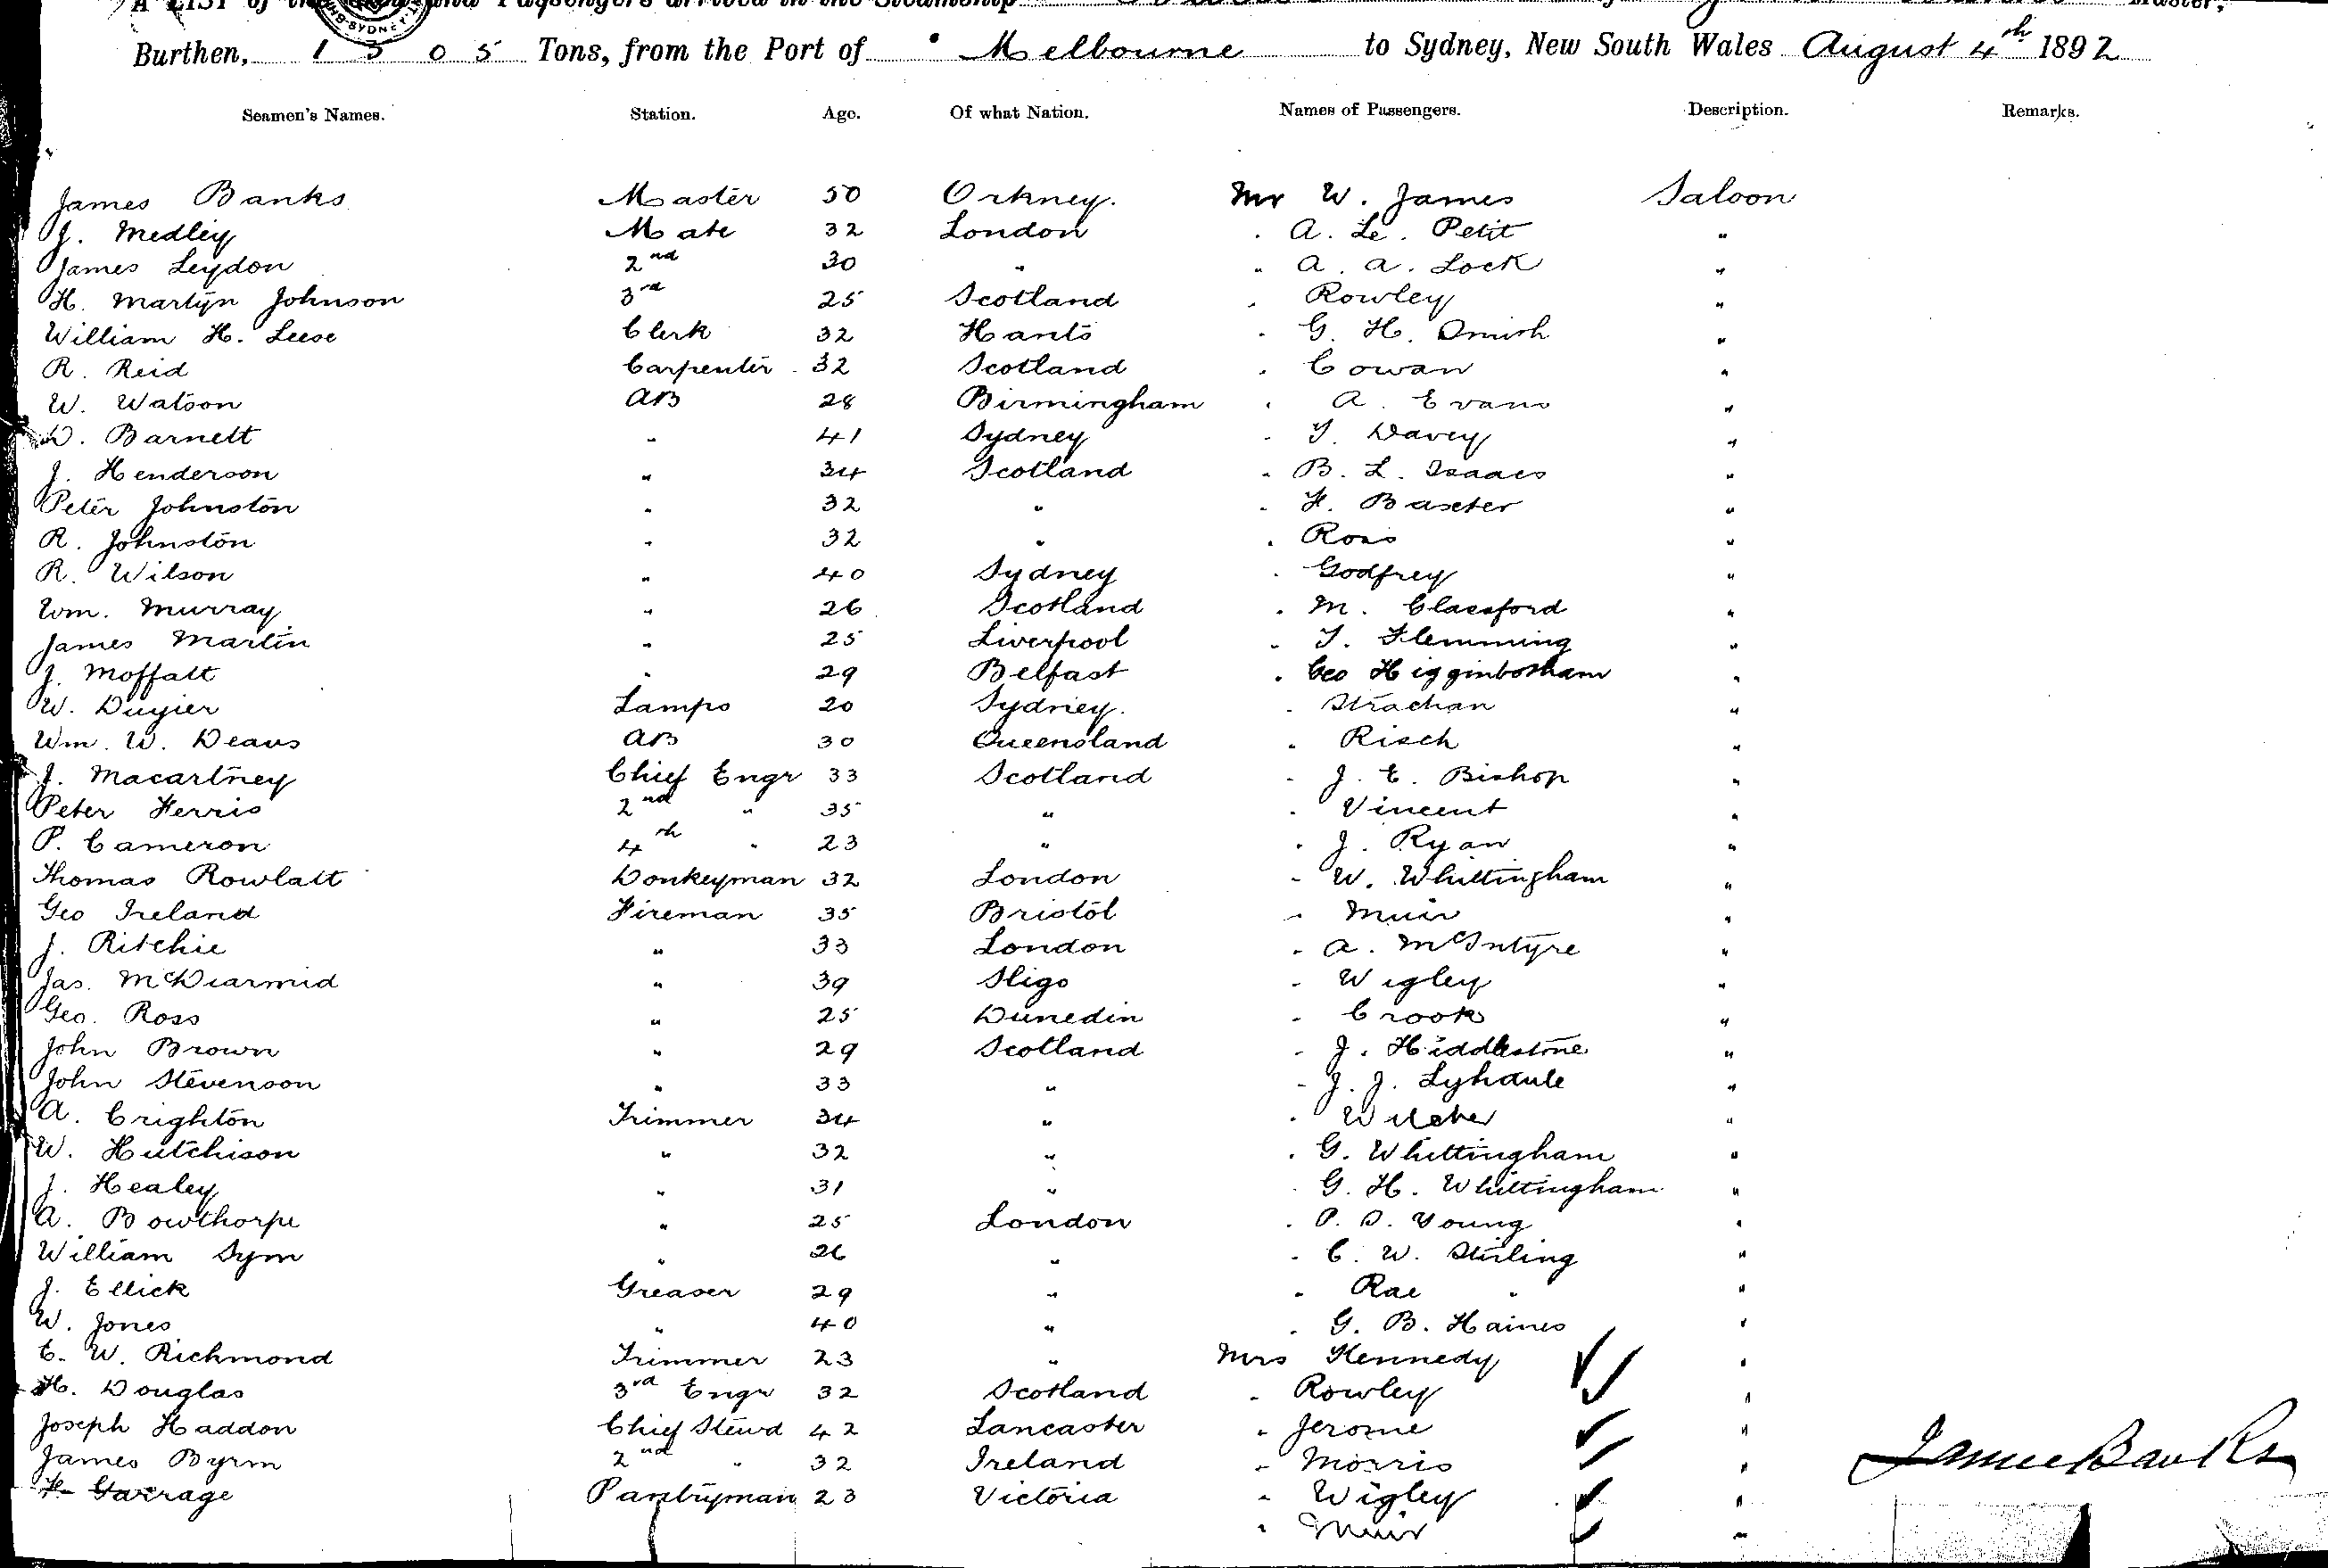 A LIST of the and Passengers arrived in the Steamship Master,
SYDNEY
Burthen, 1305 Tons, from the Port of Melbourne to Sydney, New South Wales August 4th 1892
Seamen's Names. Station. Age. Of what Nation. Names of Passengers. Description. Remarks.
James Banks Master 50 Orkney. Mr W. James Saloon
J. Medley Mate 32 London . A. Le. Petit "
James Leydon 2nd 30 " " A. A. Lock "
H. Martyn Johnson 3rd 25 Scotland . Rowley "
William H. Leese Clerk 32 Hants . G. H. Smith "
R. Reid Carpenter 32 Scotland . Cowan "
W. Watson AB 28 Birmingham . A. Evans "
D. Barnett " 41 Sydney . T. Davey "
J. Henderson " 34 Scotland . B. L. Isaacs "
Peter Johnston " 32 " . F. Baxter "
R. Johnston " 32 " . Ross "
R. Wilson " 40 Sydney . Godfrey "
Wm. Murray " 26 Scotland . M. Glassford "
James Martin " 25 Liverpool . T. Flemming "
J. Moffatt " 29 Belfast . Geo Higginbotham "
W. Lamps 20 Sydney. . Strachan "
Wm. W. Deans AB 30 Queensland . Risch "
J. Macartney Chief Engr 33 Scotland . J. E. Bishop "
Peter Ferris 2nd " 35 " . Vincent "
P. Cameron 4th " 23 " . J. Ryan "
Thomas Rowlatt Donkeyman 32 London . W. Whittingham "
Geo Ireland Fireman 35 Bristol . Muir "
J. Ritchie " 33 London . A. McIntyre "
Jas. McDiarmid " 39 Sligo . Wigley "
Geo. Ross " 25 Dunedin . Crook "
John Brown " 29 Scotland . J. Hiddlestone "
John Stevenson " 33 " . J. J. "
A. Crighton Trimmer 34 " . "
W. Hutchison " 32 " . G. Whittingham "
J. Healey " 31 " . G. H. Whittingham "
A. Bowthorpe " 25 London . P. D. Young "
William Sym " 26 " . C. W. Stirling "
J. Ellick Greaser 29 " . Rae "
W. Jones " 40 " . G. B. Haines "
E. W. Richmond Trimmer 23 " Mrs Kennedy "
H. Douglas 3rd Engr 32 Scotland " Rowley "
Joseph Haddon Chief Stewd 42 Lancaster " Jerome "
James Byrm 2nd " 32 Ireland " Morris " James Banks
F. Garrage Pantryman 23 Victoria " Wigley "
" Muir "